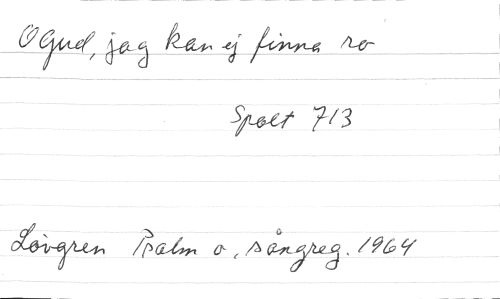 O Gud, jag kan ej finna ro
Spalt 713
Lövgren Psalm o. sångreg. 1964